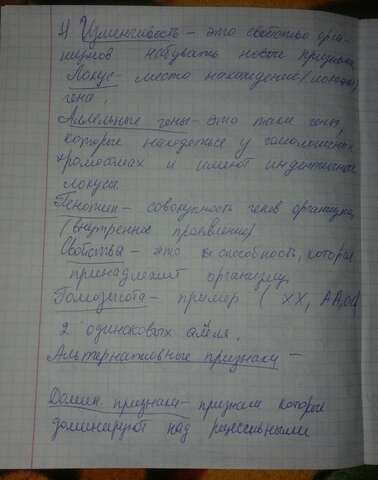 1) Изменчивость – это свойство орга-
низмов набувать новые признаки
Локус – место нахождения (локации)
гена.
Аллельные гены – это такие гены,
которые находяться у гомологичных
хромосомах и имеют индентичные
локусы.
Генотип – совокупность генов организма,
(внутренное проявление)
Свойства – это способность, которые
принадлежит организму,
Гомозигота – пример ( XX, AA,
2 одинаковых алеля.
Альтернативные признаки –
Домин признаки – признаки которые
доминируют над рцессивными